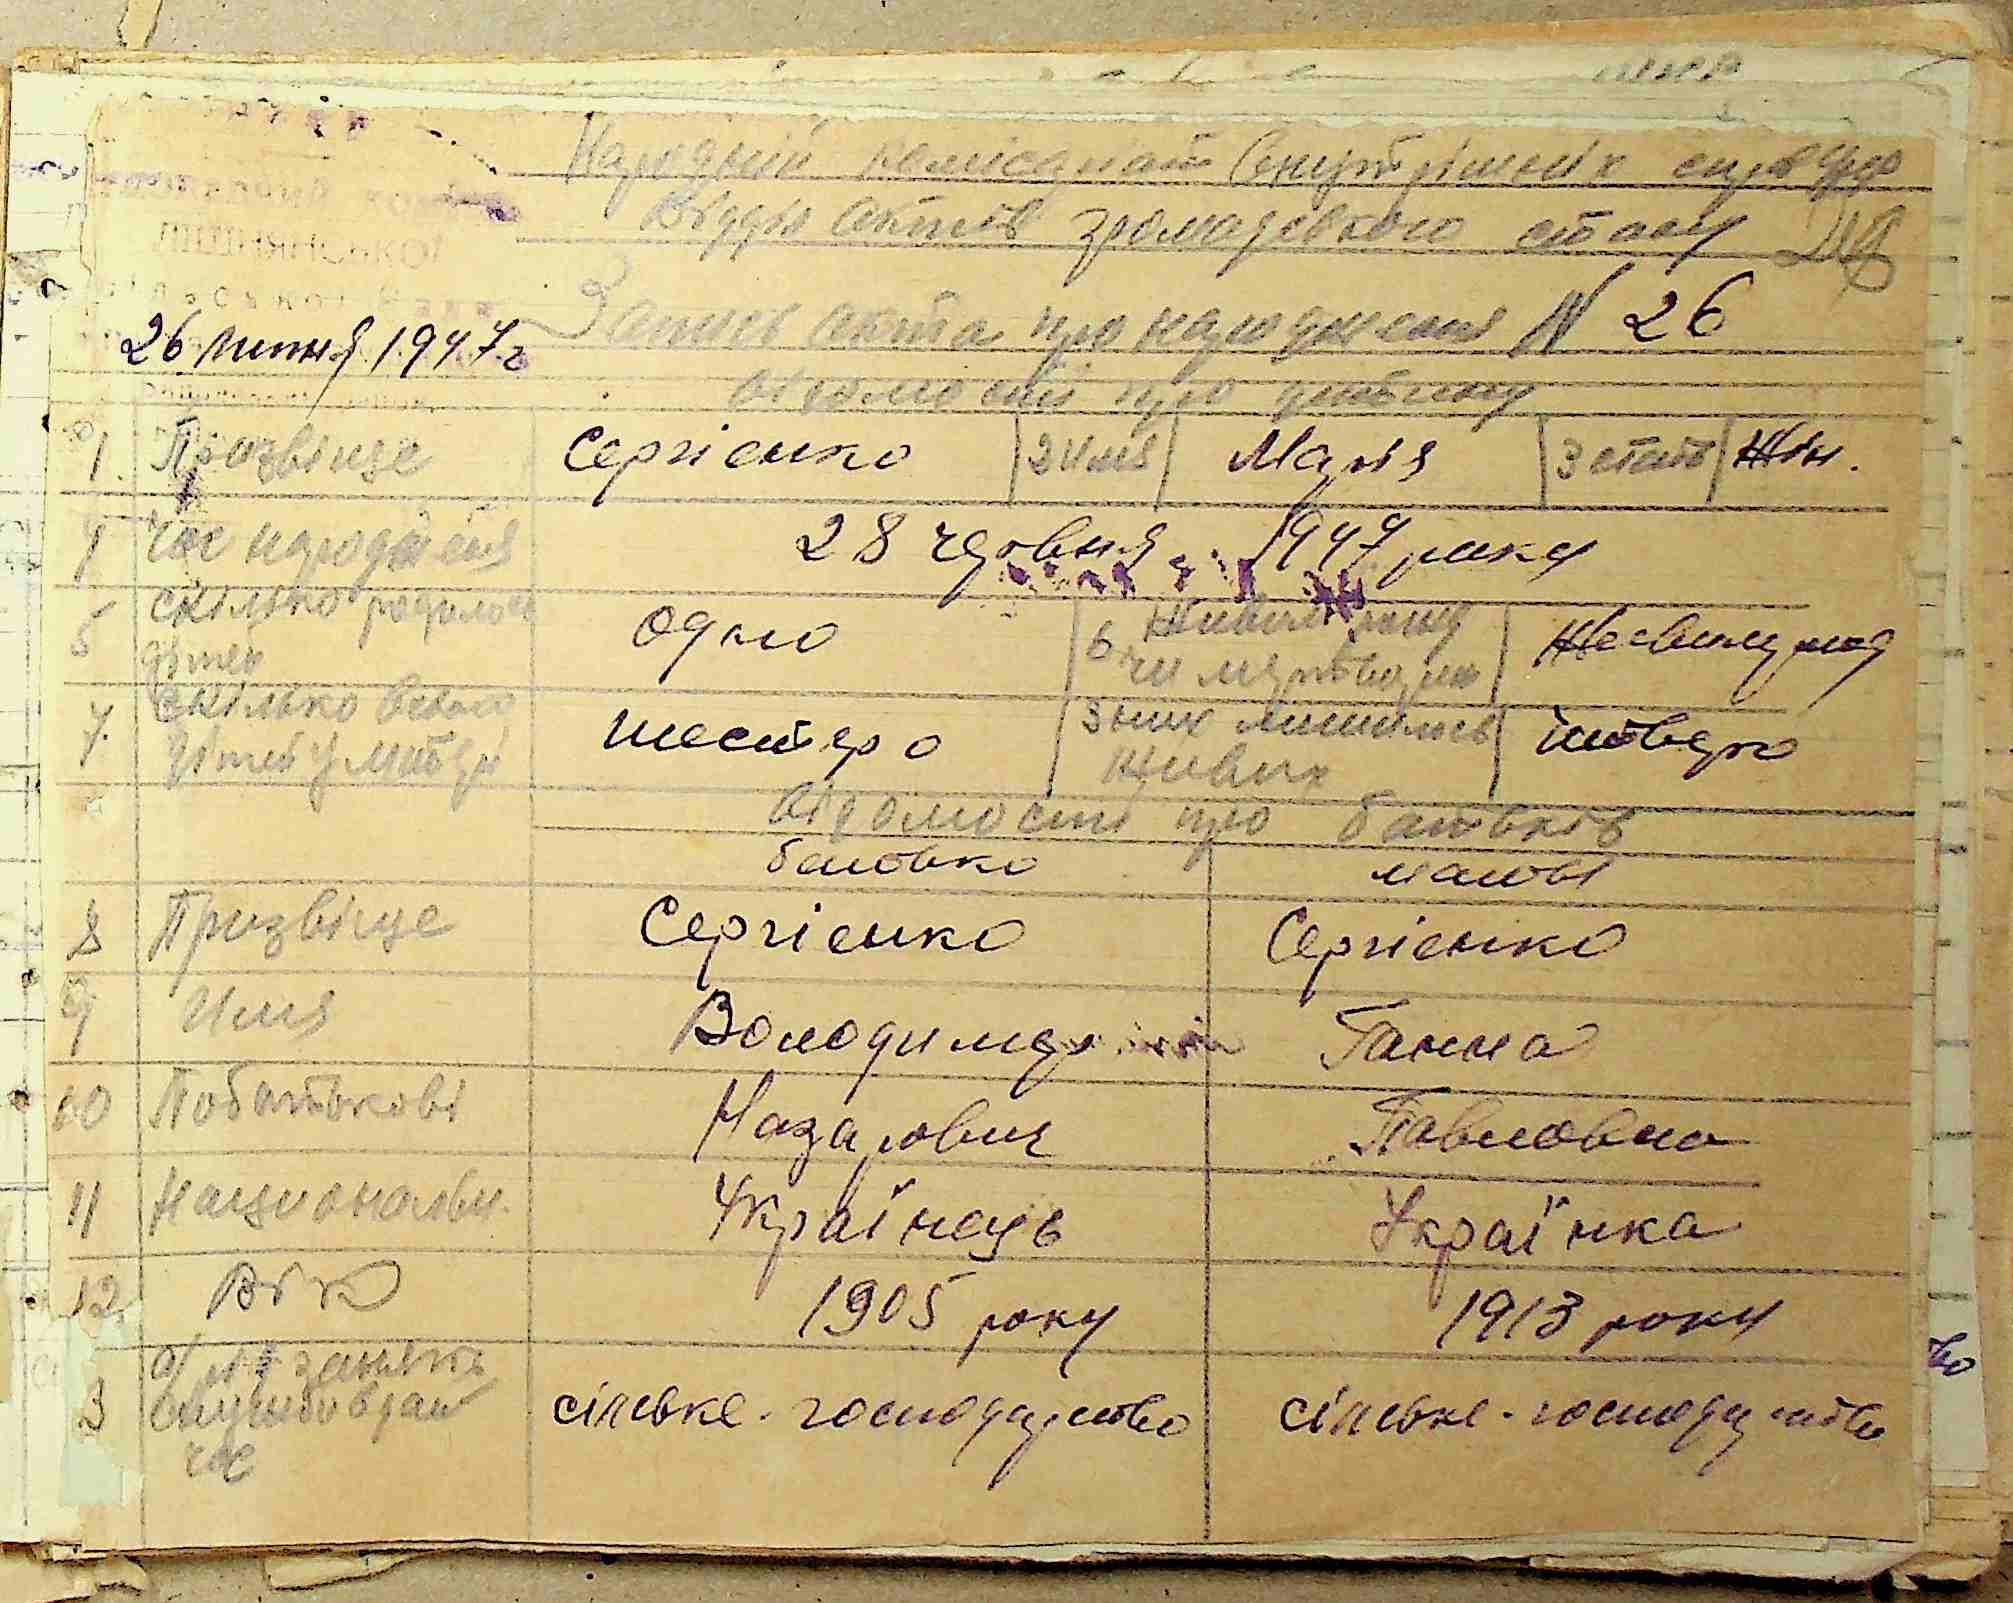 Народній комісаріат Внутрішніх справ
Відділ Актів громадського стану
26 липня 1947 г
Запись акта про народження N 26
відомості про дитину
1. Прізвіще Сергієнко 2 имя Марія 3 стать Жін.
4 Час народження 28 червня 1947 року
5 скілько родилось дітей одно 6 Живим чи мертвою
7. скілько всього дітей у матери шестеро з них лишилось живих
відомості про батьків
батько маты
8 Призвіще Сергієнко Сергієнко
9 Имя Володимер Ганна
10 Побатькові Назарович Павловна
11 Национальн. Українець Українка
12. Вік 1905 року 1913 року
3 занять час сільське-господарство сільське-господарство